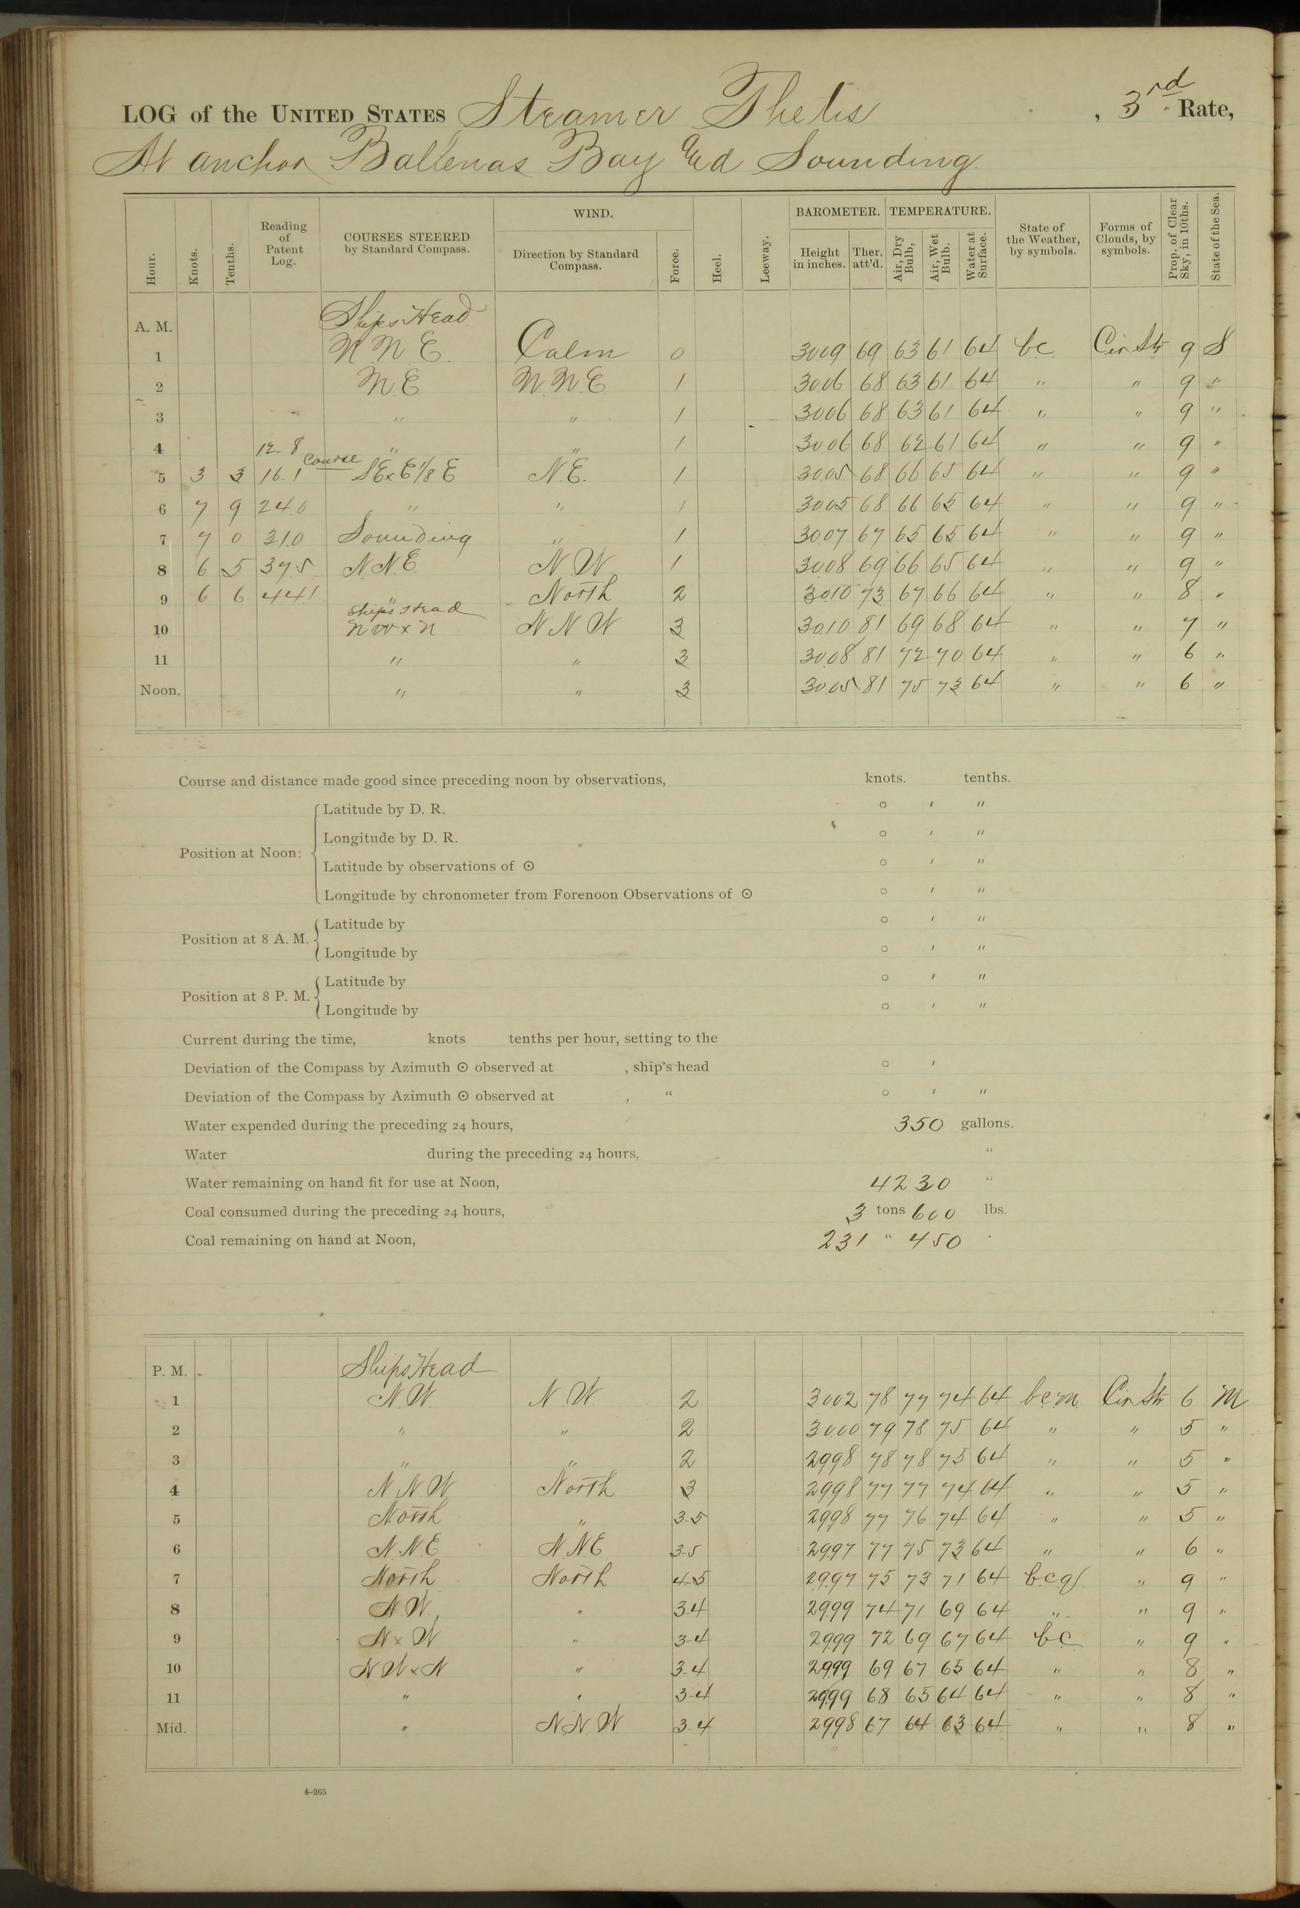 LOG of the UNITED STATES Steamer Thetis , 3rd Rate,
At anchor Ballenas Bay and Sounding
Hour. Knots. Tenths. Reading of Patent Log. COURSES STEERED by Standard Compass. WIND. Direction by Standard Compass. Force. Heel. Leeway. BAROMETER. Height in inches. Ther. att'd. TEMPERATURE. Air, Dry Bulb, Air, Wet Bulb. Water at Surface. State of the Weather, by symbols. Forms of Clouds, by symbols. Prop. of Clear Sky, in 10ths. State of the Sea.
A. M. Ships Head
1 N N E. Calm 0 3009 69 63 61 64 bc Cir Str 9 S
2 N E N.N.E 1 3006 68 63 61 64 " " 9 "
3 " " 1 3006 68 63 61 64 " " 9 "
4 12.8 " " 1 3006 68 62 61 64 " " 9 "
5 3 3 16.1 Course SExE1/8E N.E. 1 3005 68 66 65 64 " " 9 "
6 7 9 240 " " 1 3005 68 66 65 64 " " 9 "
7 7 0 310 Sounding " 1 3007 67 65 65 64 " " 9 "
8 6 5 375 N.N.E N.W 1 3008 69 66 65 64 " " 9 "
9 6 6 441 " North 2 3010 73 67 66 64 " " 8 "
Ships Head
10 NW x N N N W 3 3010 81 69 68 64 " " 7 "
11 " " 3 3008 81 72 70 64 " " 6 "
Noon. " " 3 3005 81 75 73 64 " " 6 "
Course and distance made good since preceding noon by observations, knots. tenths.
Position at Noon: Latitude by D. R. ° ′ ″
Longitude by D. R. ° ′ ″
Latitude by observations of ☉ ° ′ ″
Longitude by chronometer from Forenoon Observations of ☉ ° ′ ″
Position at 8 A. M. Latitude by ° ′ ″
Longitude by ° ′ ″
Position at 8 P. M. Latitude by ° ′ ″
Longitude by ° ′ ″
Current during the time, knots tenths per hour, setting to the
Deviation of the Compass by Azimuth ☉ observed at , ship's head ° ′
Deviation of the Compass by Azimuth ☉ observed at , “ ° ′ ″
Water expended during the preceding 24 hours, 350 gallons.
Water during the preceding 24 hours, "
Water remaining on hand fit for use at Noon, 4230 "
Coal consumed during the preceding 24 hours, 3 tons 600 lbs.
Coal remaining on hand at Noon, 231 " 450 "
P. M. Ships Head
1 N.W. N.W 2 3002 78 77 74 64 bcm Cir Str 6 M
2 " " 2 3000 79 78 75 64 " " 5 "
3 " " 2 2998 78 78 75 64 " " 5 "
4 N N W North 3 2998 77 77 74 64 " " 5 "
5 North " 3-5 2998 77 76 74 64 " " 5 "
6 N.N.E N.N.E 3-5 2997 77 75 73 64 " " 6 "
7 North North 4-5 2997 75 73 71 64 bcq " 9 "
8 N.W. " 3-4 2999 74 71 69 64 " " 9 "
9 N x W " 3-4 2999 72 69 67 64 bc " 9 "
10 N W x N " 3-4 2999 69 67 65 64 " " 8 "
11 " " 3-4 2999 68 65 64 64 " " 8 "
Mid. " N N W 3-4 2998 67 64 63 64 " " 8 "
4-265